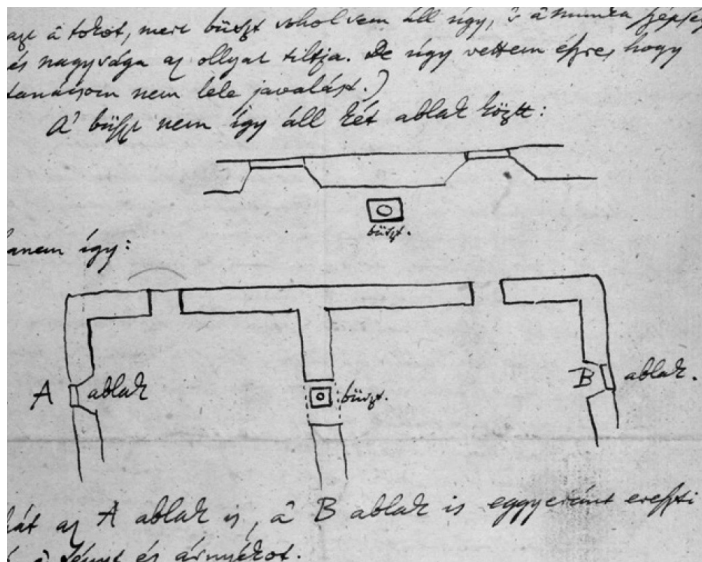 a tokot, mert büszt sohol sem áll úgy, 's a' munka szépség
és nagysága az ollyat tiltja. De úgy vettem észre, hogy
tanácsom nem lele javalást.)
A' büszt nem így áll két ablak köztt:
büszt.
hanem így:
A ablak
büszt.
B ablak.
hát az A ablak is, a' B ablak is eggyeránt ereszti
a' fényt és árnyékot.